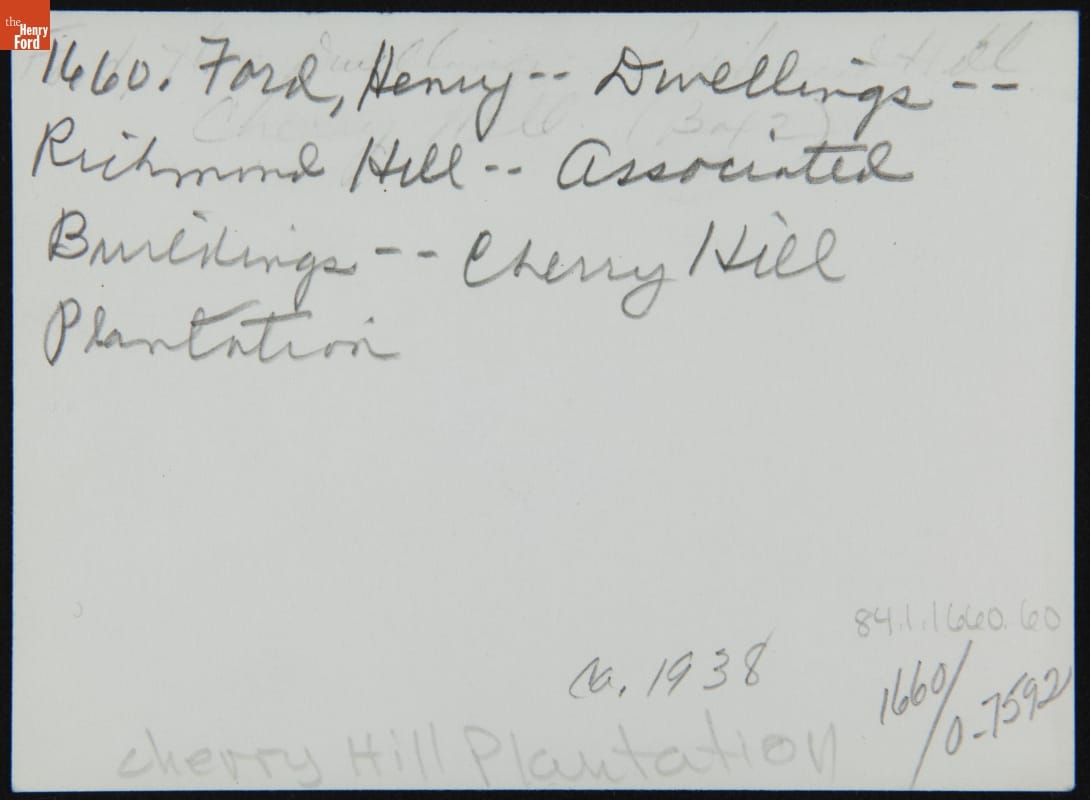 the
Henry
Ford
1660. Ford, Henry -- Dwellings --
Richmond Hill -- Associated
Buildings -- Cherry Hill
Plantation
84.1.1660.60
ca. 1938
1660/0-7592
Cherry Hill Plantation